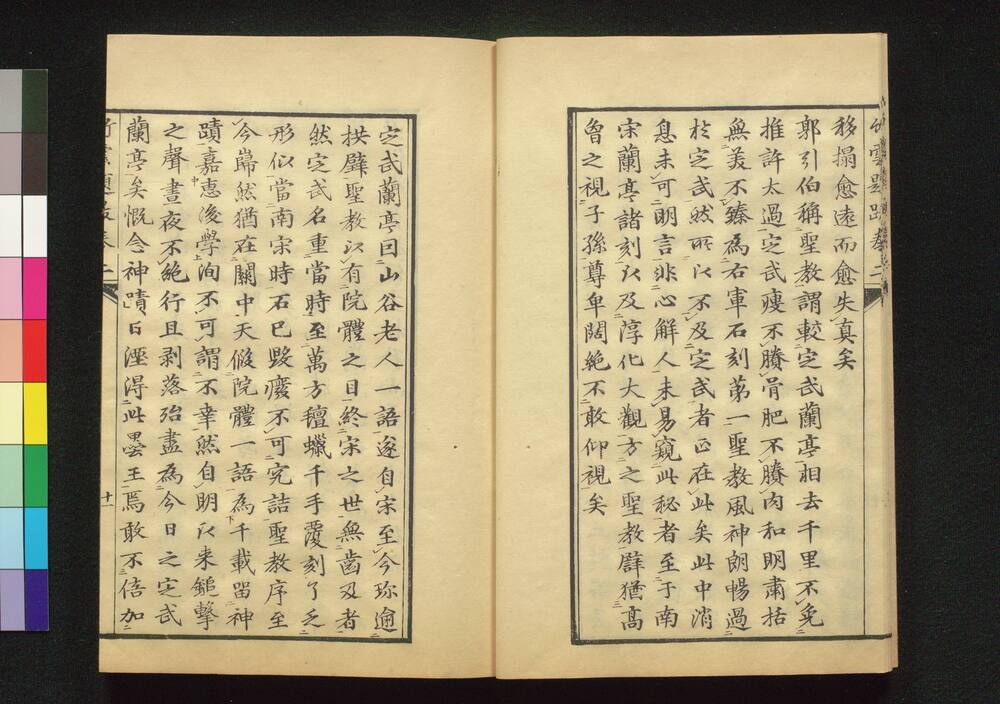 竹雲題跋卷二
移搨愈遠而愈失真矣
郭引伯稱聖教謂較定武蘭亭相去千里不免
推許太過定武瘦不賸骨肥不賸肉和明肅括
無美不臻為右軍石刻第一聖教風神朗暢過
於定武然所以不及定武者正在此矣此中消
息未可明言非心解人未易窺此秘者至于南
宋蘭亭諸刻以及淳化大觀方之聖教辟猶高
曾之視子孫尊卑闊絶不敢仰視矣
定武蘭亭因山谷老人一語遂自宋至今珎逾
拱璧聖教以有院體之目終宋之世無齒及者
然定武名重當時至萬方氊蠟千手覆刻了乏
形似當南宋時石已毀廢不可究詰聖教序至
今巋然猶在關中天假院體一語為千載留神
蹟嘉惠後學洵不可謂不幸然自明以来鎚擊
之聲晝夜不絶行且剥落殆盡為今日之定武
蘭亭矣慨念神蹟日湮得此曇王焉敢不倍加
竹雲題跋卷二
十一